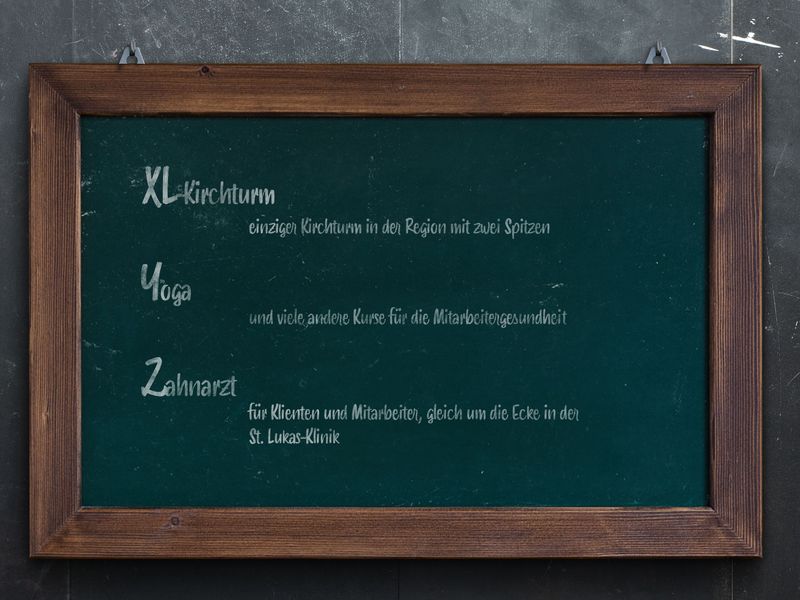 XL-Kirchturm
einziger Kirchturm in der Region mit zwei Spitzen
Yoga
und viele andere Kurse für die Mitarbeitergesundheit
Zahnarzt
für Klienten und Mitarbeiter, gleich um die Ecke in der
St. Lukas-Klinik